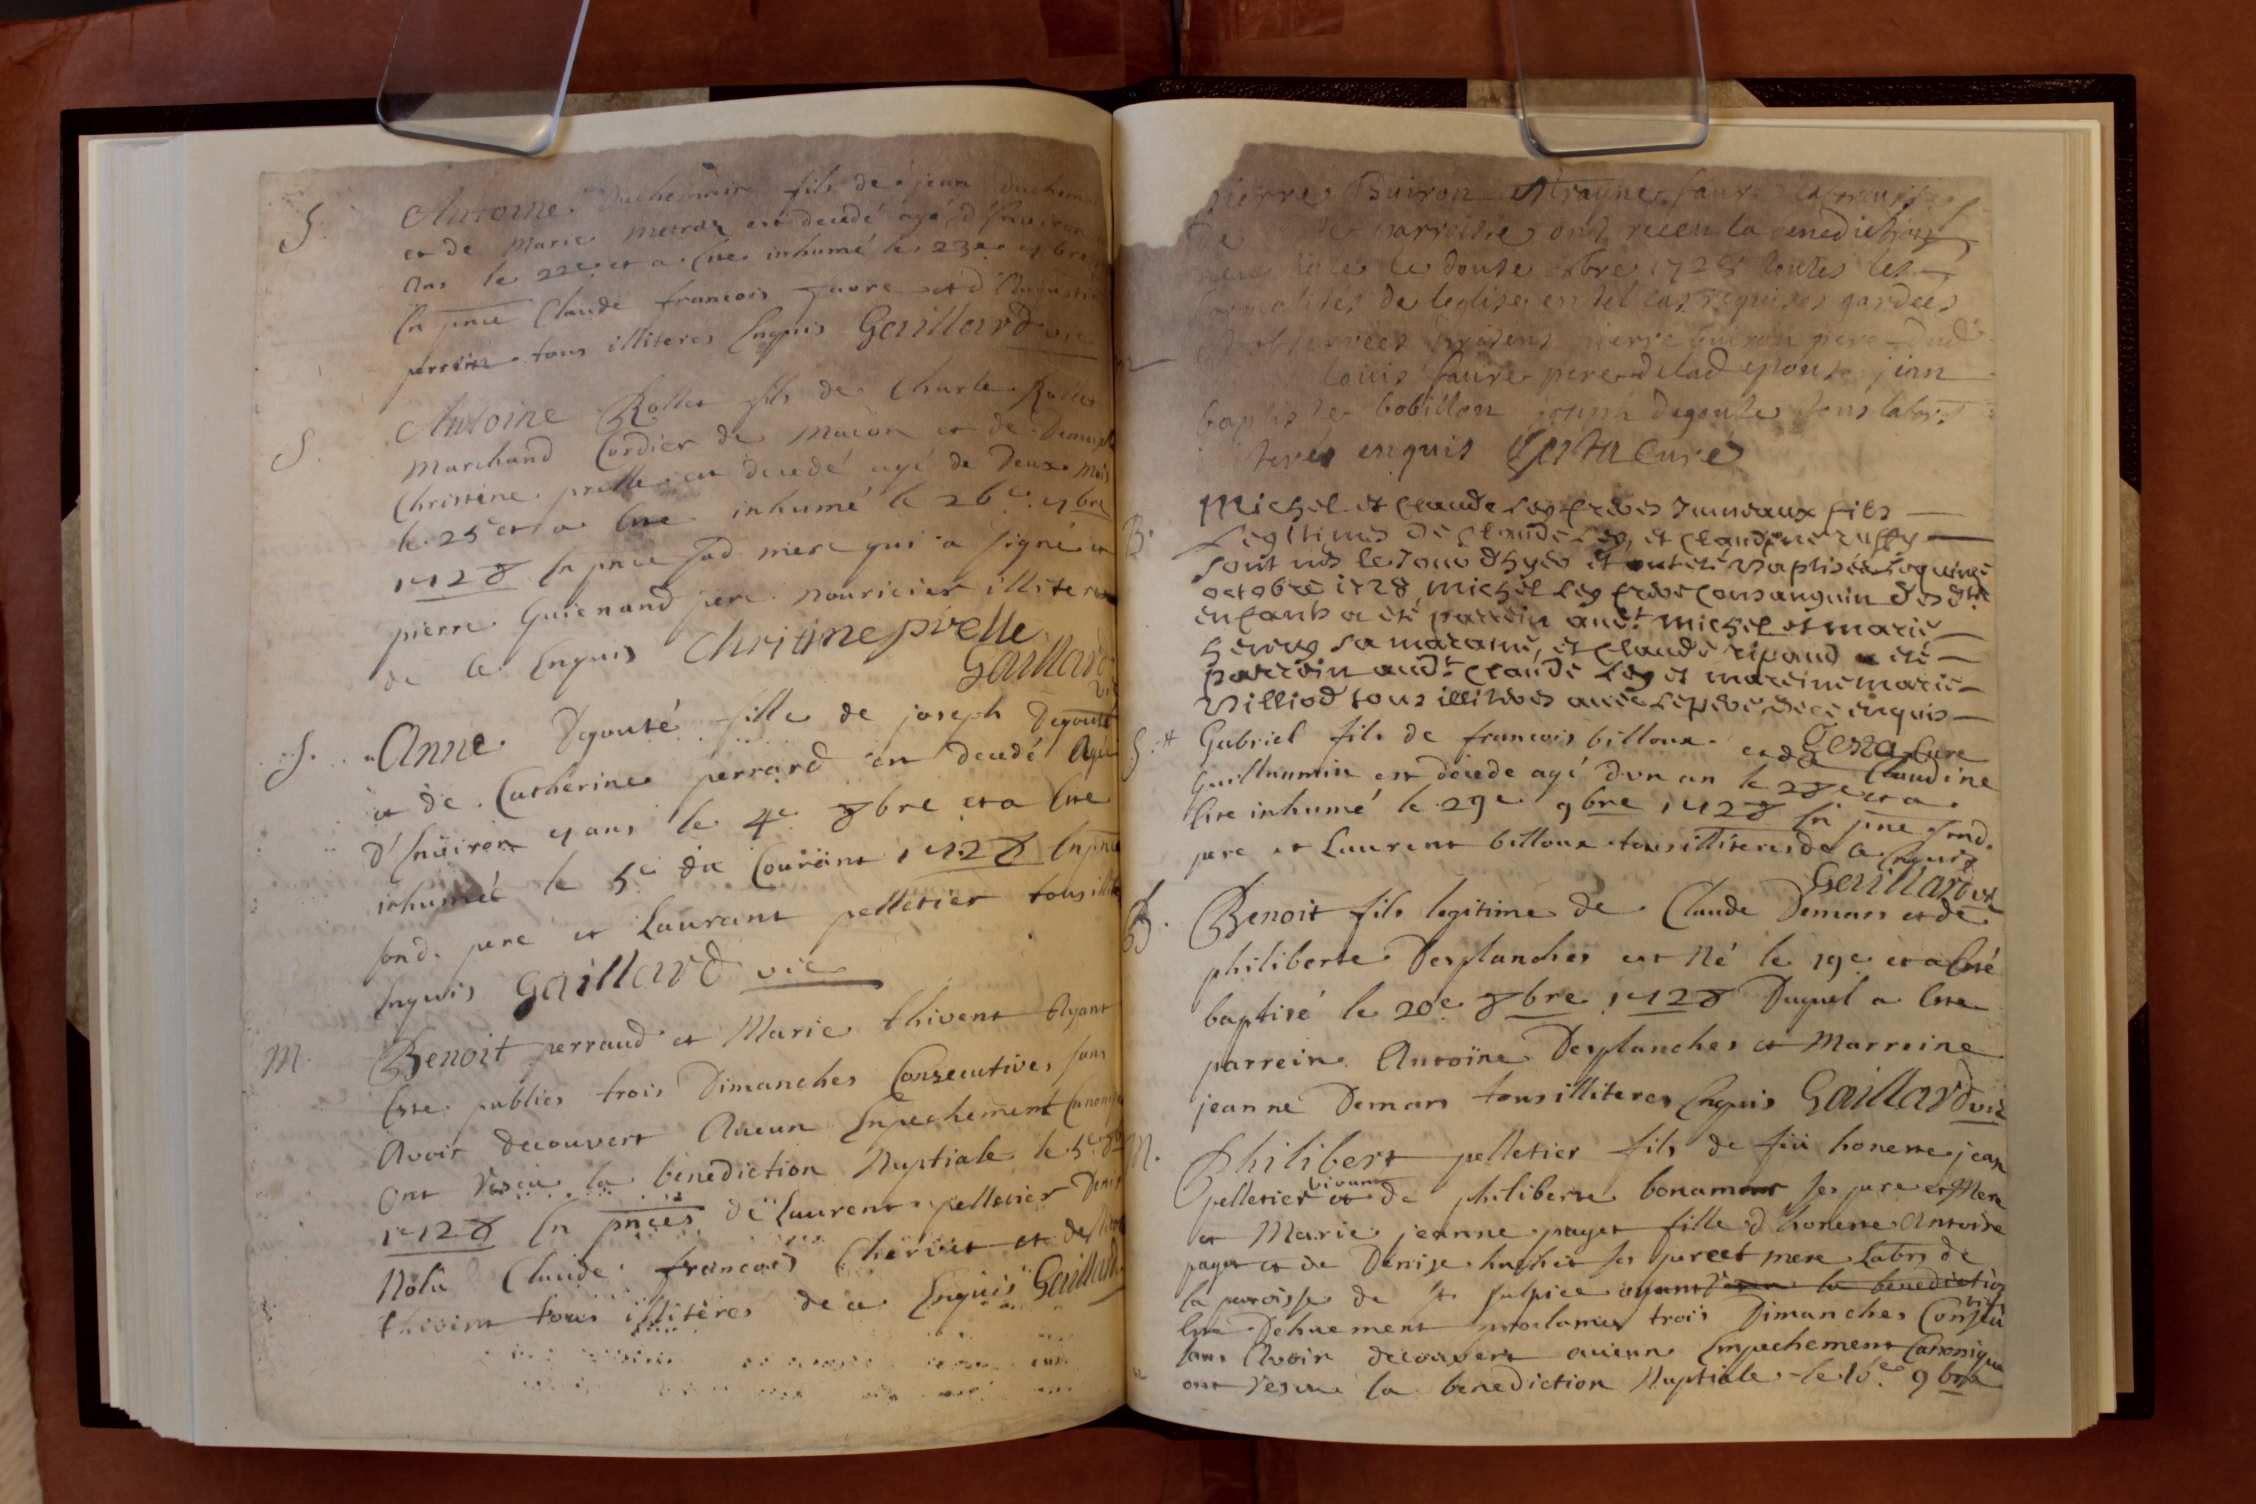 S.
Antoine Duchemin fils de jean Duchem
et de Marie metraz est decedé agé d'Environ
Ans le 22e et a Este inhumé le 23e 7bre
En pnce Claude francois favre et d'
perrin tous illiteres Enquis Gaillard vic
S.
Antoine Rollet fils de Charle Rollet
Marchand Cordier de macon et de Demois
Christine prelle est decedé agé de Deux mois
le 25 et a Este inhumé le 26e 7bre
1728 En pnce sad mere qui a signé et
pierre Guienand pere nouricier illitere
de ce Enquis Christine prelle
Gaillard
vic
S.
Anne Dgouté fille de joseph Degouté
et de Catherine perrard est decedé Agée
d'Environ 4 ans le 4e 8bre et a Este
inhumée le 5e du Courant 1728 En pnce
sond. pere et Laurant pelletier tous illit
Enquis Gaillard vic
M.
Benoit perraud et Marie thivent Ayant
Este publies trois Dimanches Consecutives sans
Avoir decouvert Aucun Enpechement Canoniq
Ont Resçu la benediction Nuptiale le 5e 8b
1728 En pnces de Laurent pelletier Denis
Nolü Claude francois Cheriet et de
thivent tous illitères de ce Enquis Gaillard
pierre Buiron et faure
de parroisse ont receu la benediction
le douse 8bre 1728 toutes les
formalités de leglise en tel cas requises gardees
et observees presens pierre buiron pere dud
louis faure pere delad epouse jean
baptiste bobillon joseph degoute tous labrs
iliterés enquis Testa Curé
B.
Michel et claude Ley freres Jumeaux fils
Legitimes De claude Ley, et claudine ruffy
sont nés le Jour dhyer et ont eté Baptisés le quinse
octobre 1728 Michel Ley frere Consanguin des dts
enfants a eté parrein audt. Michel et marie
sa maraine, et claude ripaud a eté
parrein audt claude Ley et mareine marie
Villiod tous illiteres avec le pere de ce enquis
Testa Cure
S.
Gabriel fils de francois billoux et de Claudine
Guillaumin est decede agé d'un an le 28e et a
Este inhumé le 29e 9bre 1728 En pnce sond.
pere et Laurent billoux tous illiteres de ce Enquis
Gaillard vic
B.
Benoit fils legitime de Claude Demars et de
philiberte Desplanches est Né le 19e et a Esté
baptisé le 20e 8bre 1728 Duquel a Este
parrein Antoine Desplanches et Marreine
jeanne Demars tous illiteres Enquis Gaillard vic
M.
Philibert pelletier fils de feü honeste jean
pelletier vivant et de philiberte bonamour ses pere et Mere
et Marie jeanne payet fille d'honeste Antoine
payet et de Denise huchet ses pere et mere Labrs de
la paroisse de St sulpice ayant Resçu la benediction
Este Dehuement proclamer trois Dimanches Consecu
tives
sans Avoir decouvert aucun Empechement Canonique
ont Resçu la benediction Nuptiale le 16e 9bre